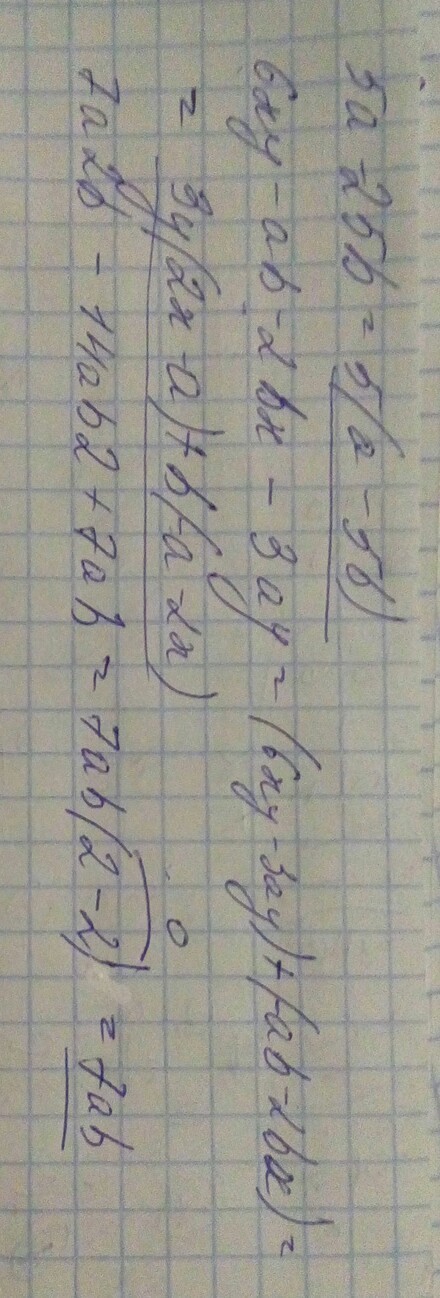 5a-25b = 5(a-5b)
6xy-ab-2bx-3ay = (6xy-3ay)+(-ab-2bx) =
= 3y(2x-a)+b(-a-2x)
7a2b - 14ab2+7ab = 7ab(2-2) = 7ab
0